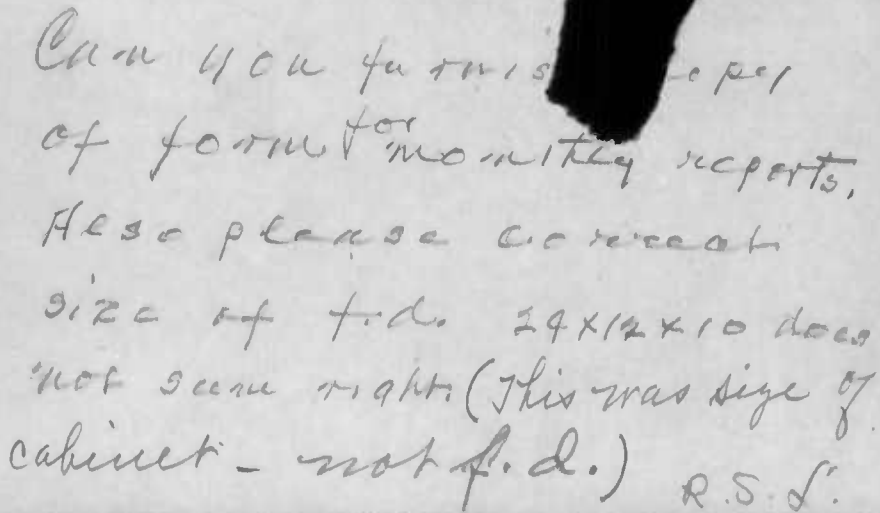 Can you furnis
of form for monthly reports.
Also please correct
size of f.d. 24x12x10 does
not seem right. (This was size of
cabinet - not f.d.)
R.S.L.